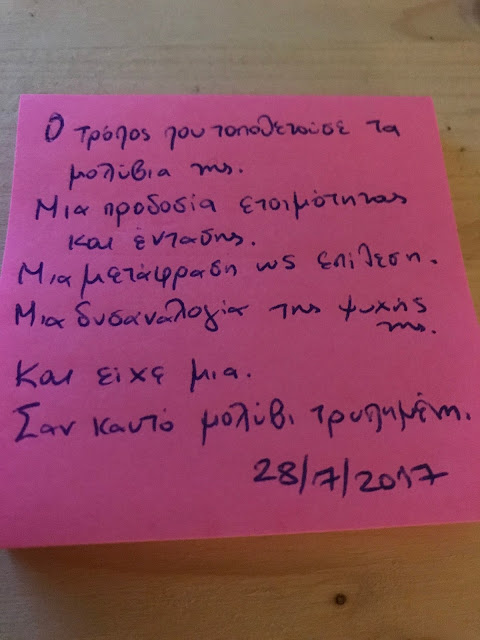 Ο τρόπος που τοποθετούσε τα
μολύβια της.
Μια προδοσία ετοιμότητας
και έντασης.
Μια μετάφραση ως επίλεση.
Μια δυσαναλογία της ψυχής
της.
Και είχε μια.
Σαν καυτό μολύβι τρυπημένη.
28/7/2017